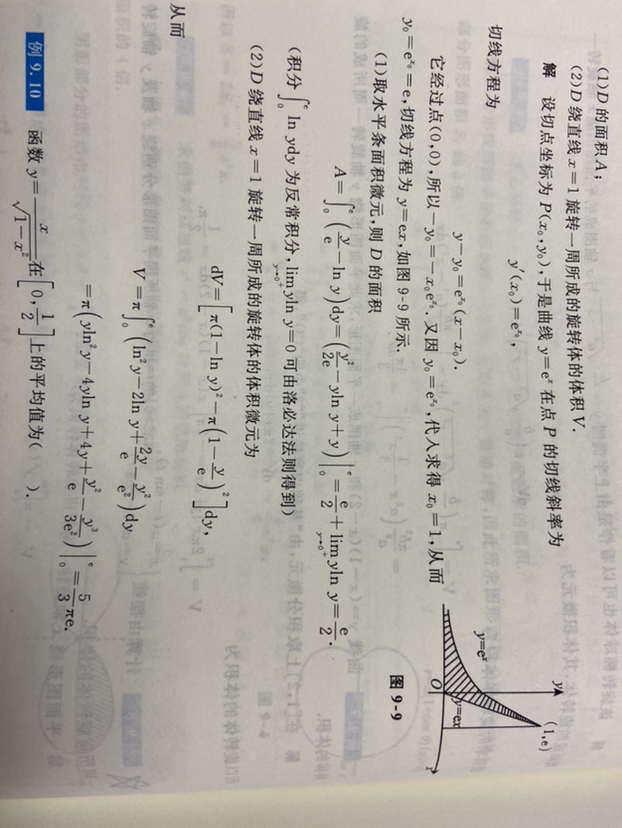 (1)D 的面积 A;
(2)D 绕直线 x=1 旋转一周所成的旋转体的体积 V.
解 设切点坐标为 P(x₀,y₀),于是曲线 y=eˣ 在点 P 的切线斜率为
y′(x₀)=e^{x₀},
切线方程为
y-y₀=e^{x₀}(x-x₀).
它经过点(0,0),所以-y₀=-x₀e^{x₀}. 又因 y₀=e^{x₀},代入求得 x₀=1,从而
y₀=e^{x₀}=e,切线方程为 y=ex,如图 9-9 所示.
y
(1,e)
y=eˣ
y=ex
O
图 9-9
(1)取水平条面积微元,则 D 的面积
A=∫₀ᵉ(y/e-ln y)dy=(y²/2e-yln y+y)|₀ᵉ=e/2+lim_{y→0⁺}yln y=e/2.
(积分∫₀ᵉ ln ydy 为反常积分,lim_{y→0⁺}yln y=0 可由洛必达法则得到)
(2)D 绕直线 x=1 旋转一周所成的旋转体的体积微元为
dV=[π(1-ln y)²-π(1-y/e)²]dy,
从而
V=π∫₀ᵉ(ln²y-2ln y+2y/e-y²/e²)dy
=π(yln²y-4yln y+4y+y²/e-y³/3e²)|₀ᵉ=5/3πe.
例 9.10 函数 y=x/√(1-x²)在[0,1/2]上的平均值为( ).